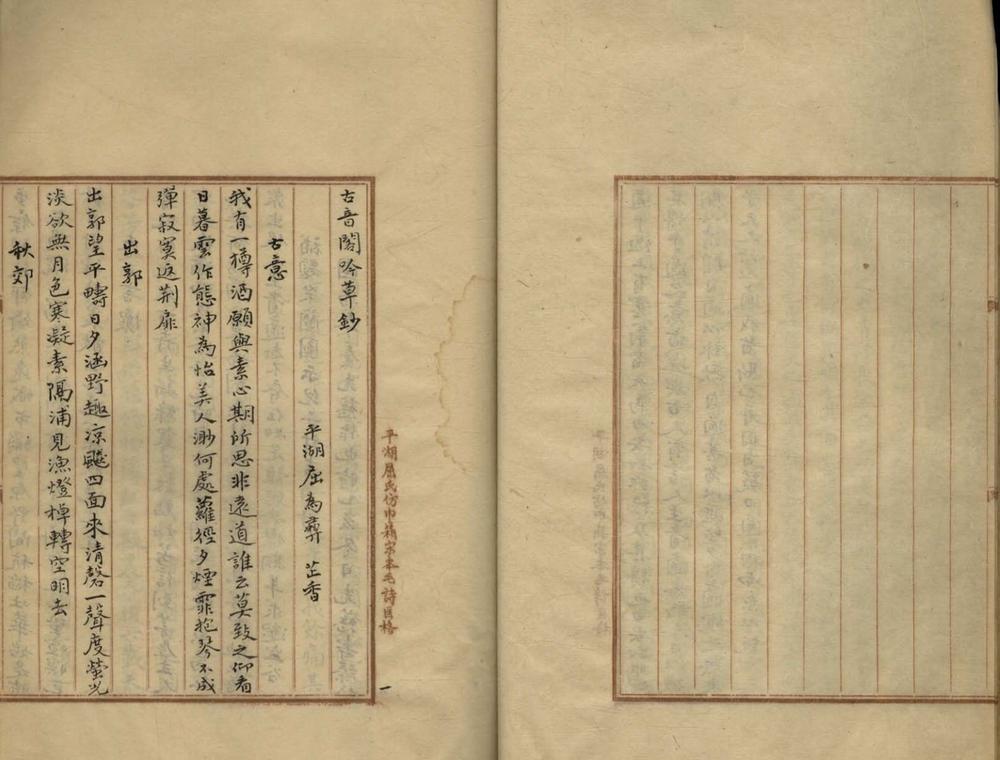 古音閣吟草鈔
平湖屈為彝 芷香
古意
我有一樽酒願與素心期所思非遠道誰云莫致之仰看
日暮雲作態神為怡美人渺何處蘿徑夕煙霏抱琴不成
彈寂寞返荆扉
出郭
出郭望平疇日夕涵野趣凉飈四面來清磬一聲度螢光
淡欲無月色寒凝素隔浦見漁燈棹轉空明去
秋郊
平湖屈氏仿巾箱宋本毛詩匡格
一